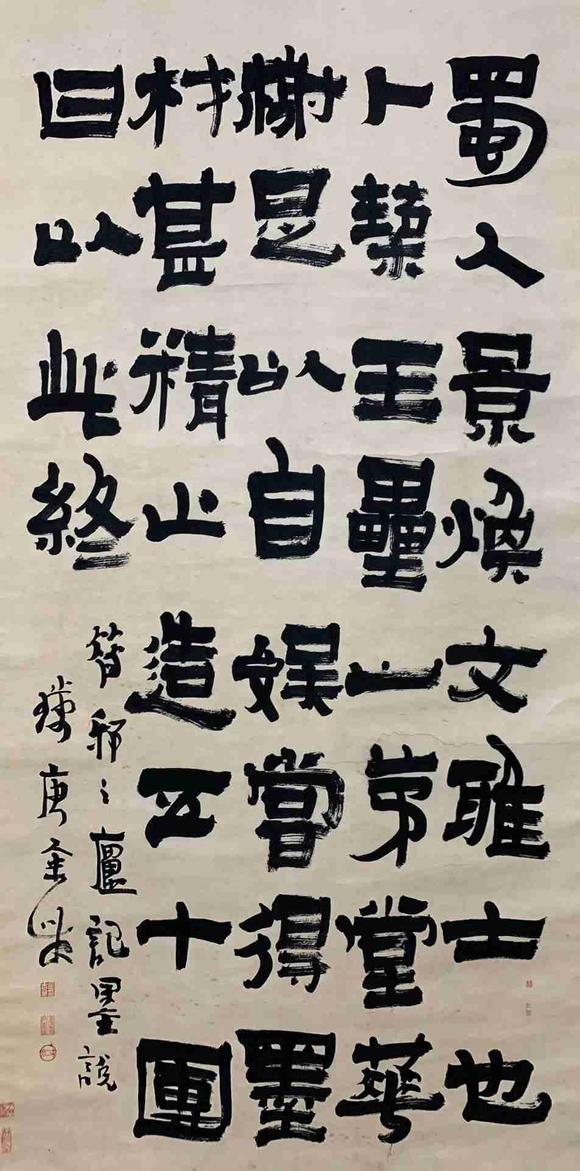 蜀人景煥文雅士也
卜築玉壘山茅堂華
榭足以自娛嘗得墨
材甚精止造五十團
曰以此終
之廬記墨說
錢唐金農